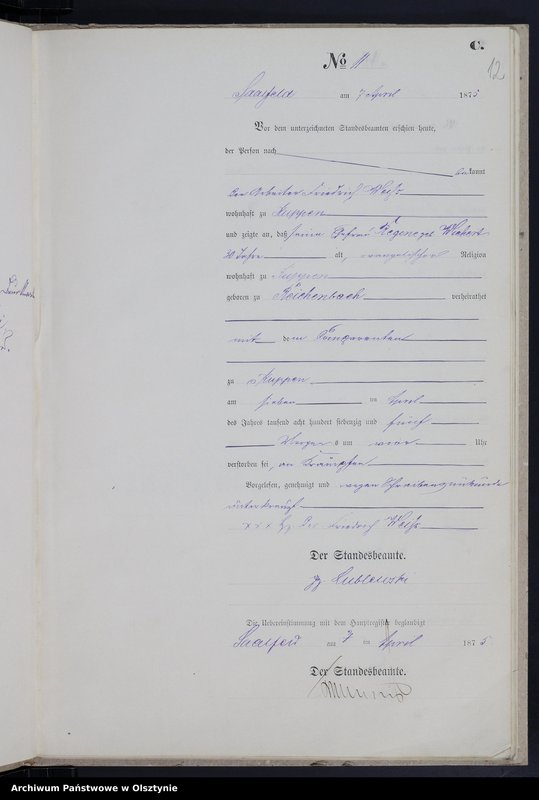 C.
No 11.
12
Saalfeld am 7 April 1875
Vor dem unterzeichneten Standesbeamten erschien heute,
der Person nach
bekannt
der Arbeiter Friedrich Weiß
wohnhaft zu Kuppen
und zeigte an, daß seine Ehefrau Regine geb Wichert
30 Jahre alt evangelischer Religion
wohnhaft zu Kuppen
geboren zu Reichenbach verheirathet
mit dem
zu Kuppen
am sieben ten April
des Jahres tausend acht hundert siebenzig und fünf
Morgen s um vier Uhr
verstorben sei, an Krämpfen
Vorgelesen, genehmigt und wegen Schreibensunkunde
unterkreuzt
x x x Hz. Des Friedrich Weiß
Der Standesbeamte.
gz. Lublewski
Die Uebereinstimmung mit dem Hauptregister beglaubigt
Saalfeld am 7 ten April 1875
Der Standesbeamte.
Archiwum Państwowe w Olsztynie